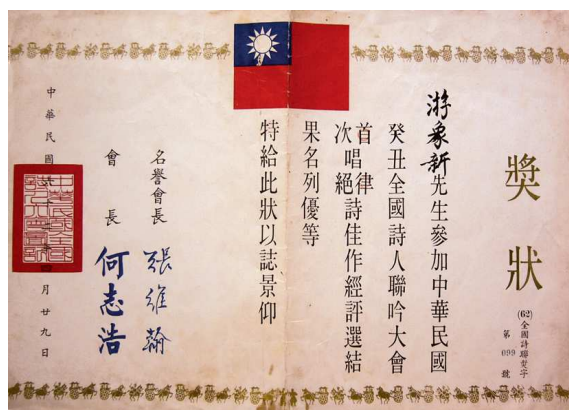 獎狀
(62)全國詩聯字
第 099 號
游象新先生參加中華民國
癸丑全國詩人聯吟大會
首律
次唱絕詩佳作經評選結
果名列優等
特給此狀以誌景仰
名譽會長 張維翰
會長 何志浩
中華民國六十二年四月廿九日